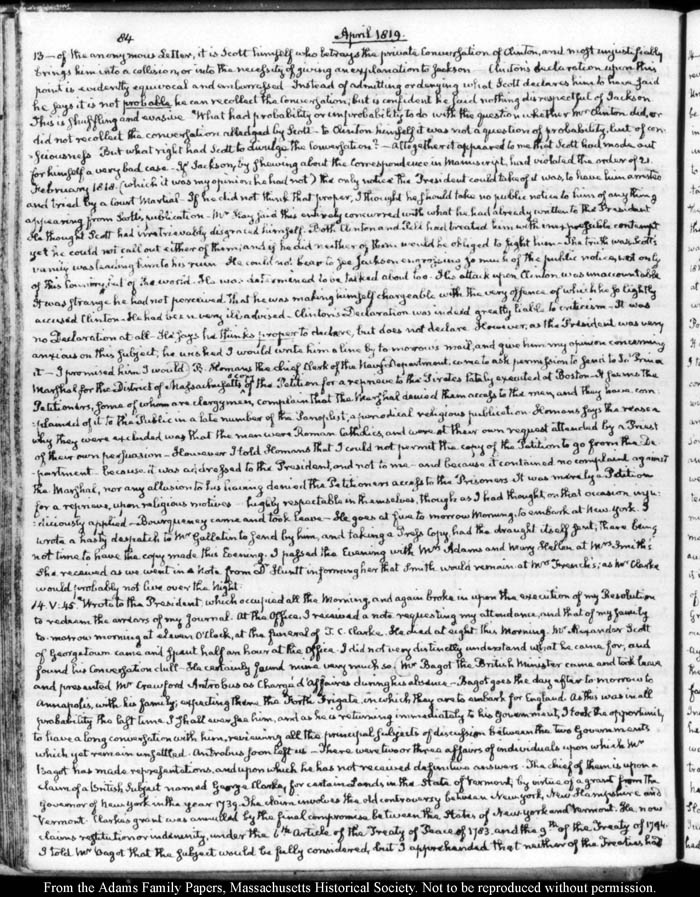 84
April 1819.
13— of the anonymous Letter, it is Scott himself who betrays the private Conversation of Clinton, and most unjustifiably
brings him into a collision, or into the necessity of giving an explanation to Jackson — Clinton's declaration upon this
point is evidently equivocal and embarrassed Instead of admitting or denying what Scott declares him to have said
he says it is not probable he can recollect the Conversation, but is confident he said nothing disrespectful of Jackson
This is shuffling and evasive. What had probability or improbability to do with the question whether Mr Clinton did, or
did not recollect the conversation alledged by Scott— To Clinton himself it was not a question of probability, but of con-
sciousness But what right had Scott to divulge the Conversation?— Altogether it appeared to me that Scott had made out
for himself a very bad case— If Jackson, by shewing about the Correspondence in Manuscript, had violated the order of 21.
February 1818. (which it was my opinion he had not) the only notice the President could take of it was, to have him arrested
and tried by a Court Martial— If he did not think that proper, I thought he should take no public notice to him of any thing
appearing from Scott's publication— Mr said this entirely concurred with what he had already written to the President
He thought Scott had irretrievably disgraced himself. Both Clinton and had treated him with the possible contempt
yet he could not call out either of them; and if he did neither of them would be obliged to fight him— The truth was, Scott's
vanity was leading him to his ruin. He could not bear to see Jackson engrossing so much of the public notice, not only
of this Country, but of the world. He was determined to be talked about too. His attack upon Clinton was unaccountable
It was strange he had not perceived that he was making himself chargeable with the very offence of which he so lightly
accused Clinton— He had been very ill advised— Clinton's Declaration was indeed greatly liable to criticism— It was
no Declaration at all— He says he thinks proper to declare, but does not declare. However, as the President was very
anxious on this subject, he wished I would write him a line by to-morrow's mail, and give him my opinion concerning
it— I promised him I would. B. Homans the chief Clerk of the Navy Department came to ask permission to send to Prince
Marshal for the District of Massachusetts of the Petition for a reprieve to the Pirates lately executed at Boston— It seems the
Petitioners, some of whom are clergymen, complain that the Marshal denied them access to the men, and they have com-
plained of it to the Public in a late number of the Panoplist, a periodical religious publication— Homans says the reason
why they were excluded was that the men were Roman Catholics and were at their own request attended by a Priest
of their own persuasion— However I told Homans that I could not permit the copy of the Petition to go from the De-
partment because it was addressed to the President, and not to me— and because it contained no complaint against
the Marshal, nor any allusion to his having denied the Petitioners access to the Prisoners It was merely a Petition
for a reprieve, upon religious motives— highly respectable in themselves, though as I had thought on that occasion inju-
diciously applied— Bourqueney came and took leave— He goes at five to morrow morning to embark at New York. I
wrote a hasty despatch to Mr Gallatin to send by him, and taking a Press Copy had the draught itself sent, there being
not time to have the copy made this Evening. I passed the Evening with Mrs Adams and Mary Hellen at Mrs Smith's
She received as we went in a Note from Dr Huntt informing her that Smith would remain at Mrs French's; as Mr Clarke
would probably not live over the Night.
14. V:45. Wrote to the President, which occupied all the Morning, and again broke in upon the execution of my Resolution
to redeem the arrears of my Journal. At the Office, I received a note requesting my attendance, and that of my family
to-morrow morning at eleven O'Clock, at the funeral of J. C. Clarke. He died at eight this Morning. Mr Alexander Scott
of Georgetown came and spent half an hour at the Office. I did not very distinctly understand what he came for, and
found his Conversation dull— He certainly found mine very much so. Mr Bagot the British Minister came and took leave
and presented Mr Crawford Antrobus as Chargé d'Affaires during his absence— Bagot goes the day after to morrow to
Annapolis, with his family; expecting there the Forth Frigate, in which they are to embark for England. As this was in all
probability the last time I shall ever see him, and as he is returning immediately to his Government, I took the opportunity
to have a long conversation with him, reviewing all the principal subjects of discussion between the two Governments
which yet remain unsettled. Antrobus soon left us— There were two or three affairs of individuals upon which Mr
Bagot has made representations, and upon which he has not received definitive answers— The chief of them is upon a
claim of a British Subject named George Clarke, for certain Lands in the State of Vermont, by virtue of a grant from the
Governor of New York in the year 1739. The claim involves the old controversy between New York, New Hampshire and
Vermont. Clarke's grant was annulled by the final compromise between the States of New York and Vermont. He now
claims restitution or indemnity, under the 6th Article of the Treaty of Peace of 1783. and the 9th of the Treaty of 1794.
I told Mr Bagot that the subject would be fully considered, but I apprehended that neither of the Treaties had
From the Adams Family Papers, Massachusetts Historical Society. Not to be reproduced without permission.